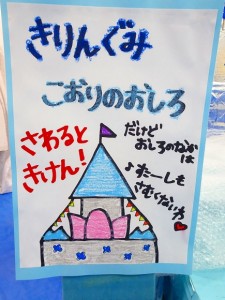 きりんぐみ
こおりのおしろ
さわると
きけん!
だけど
おしろのなかは
♪すこーしも
さむくないわ